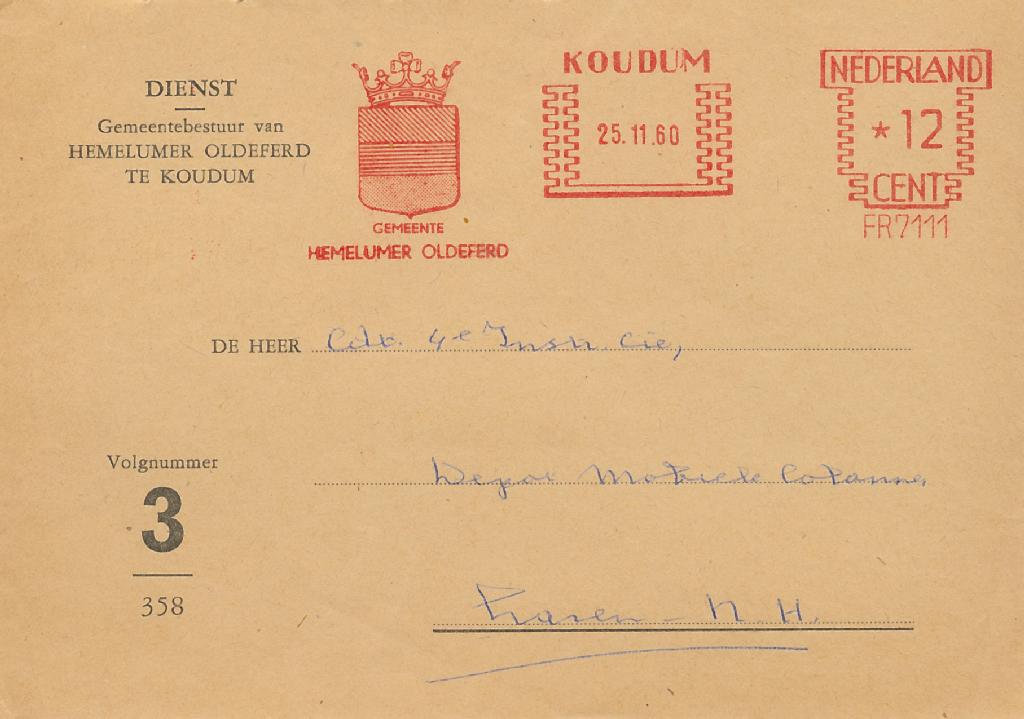 DIENST
Gemeentebestuur van
HEMELUMER OLDEFERD
TE KOUDUM
GEMEENTE
HEMELUMER OLDEFERD
KOUDUM
25.11.60
NEDERLAND
* 12
CENT
FR 7111
DE HEER Cdt. 4e Instr. Cie,
Depot Mobiele Colonne,
Laren - N. H.
Volgnummer
3
358